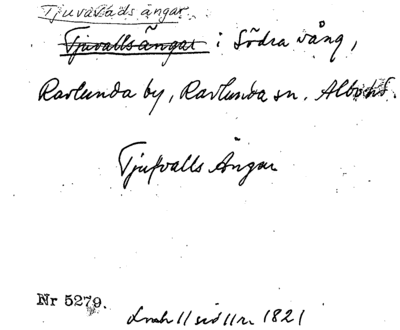 Tjuvavads ängar.
Tjuvallsängar i Södra vång,
Ravlunda by, Ravlunda sn. Albo hd.
Tjufvalls Ängar
Nr 5279.
1821